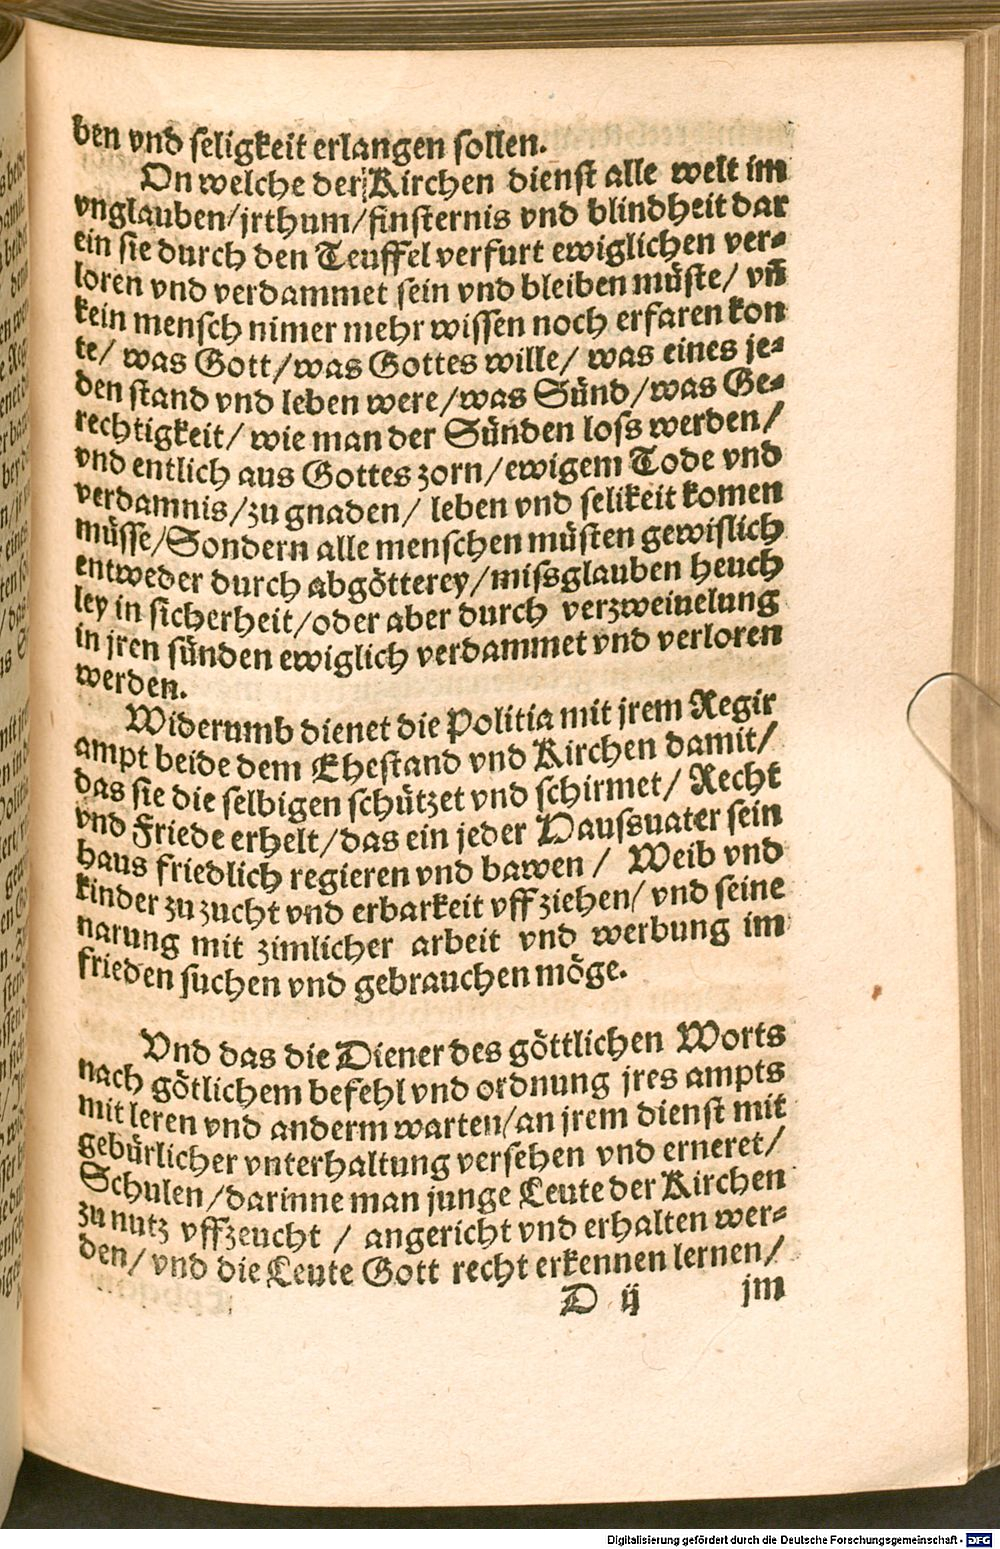 ben vnd seligkeit erlangen sollen.
On welche der Kirchen dienst alle welt im
vnglauben/jrthum/finsternis vnd blindheit dar
ein sie durch den Teuffel verfurt ewiglichen ver-
loren vnd verdammet sein vnd bleiben müste/ vñ
kein mensch nimer mehr wissen noch erfaren kon
te/ was Gott/was Gottes wille/ was eines je-
den stand vnd leben were/was Sünd/was Ge-
rechtigkeit/ wie man der Sünden loss werden/
vnd entlich aus Gottes zorn/ewigem Tode vnd
verdamnis/zu gnaden/ leben vnd selikeit komen
müsse/Sondern alle menschen müsten gewislich
entweder durch abgötterey/missglauben heuch
ley in sicherheit/oder aber durch verzweiuelung
in jren sünden ewiglich verdammet vnd verloren
werden.
Widerumb dienet die Politia mit jrem Regir
ampt beide dem Ehestand vnd Kirchen damit/
das sie die selbigen schützet vnd schirmet/ Recht
vnd Friede erhelt/das ein jeder Haussuater sein
haus friedlich regieren vnd bawen / Weib vnd
kinder zu zucht vnd erbarkeit vff ziehen/ vnd seine
narung mit zimlicher arbeit vnd werbung im
frieden suchen vnd gebrauchen möge.
Vnd das die Diener des göttlichen Worts
nach götlichem befehl vnd ordnung jres ampts
mit leren vnd anderm warten/an jrem dienst mit
gebürlicher vnterhaltung versehen vnd erneret/
Schulen/darinne man junge Leute der Kirchen
zu nutz vffzeucht / angericht vnd erhalten wer-
den/ vnd die Leute Gott recht erkennen lernen/
D ij jm
Digitalisierung gefördert durch die Deutsche Forschungsgemeinschaft - DFG